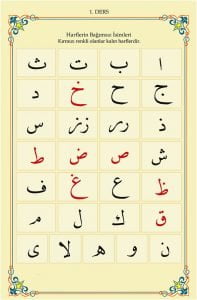 1. DERS
Harflerin Bağımsız İsimleri
Kırmızı renkli olanlar kalın harflerdir.
ا ب ت ث
ج ح خ د
ذ رر زز س
ش ص ض ط
ظ ع غ ف
ق ك ل م
ن و ه لا ى